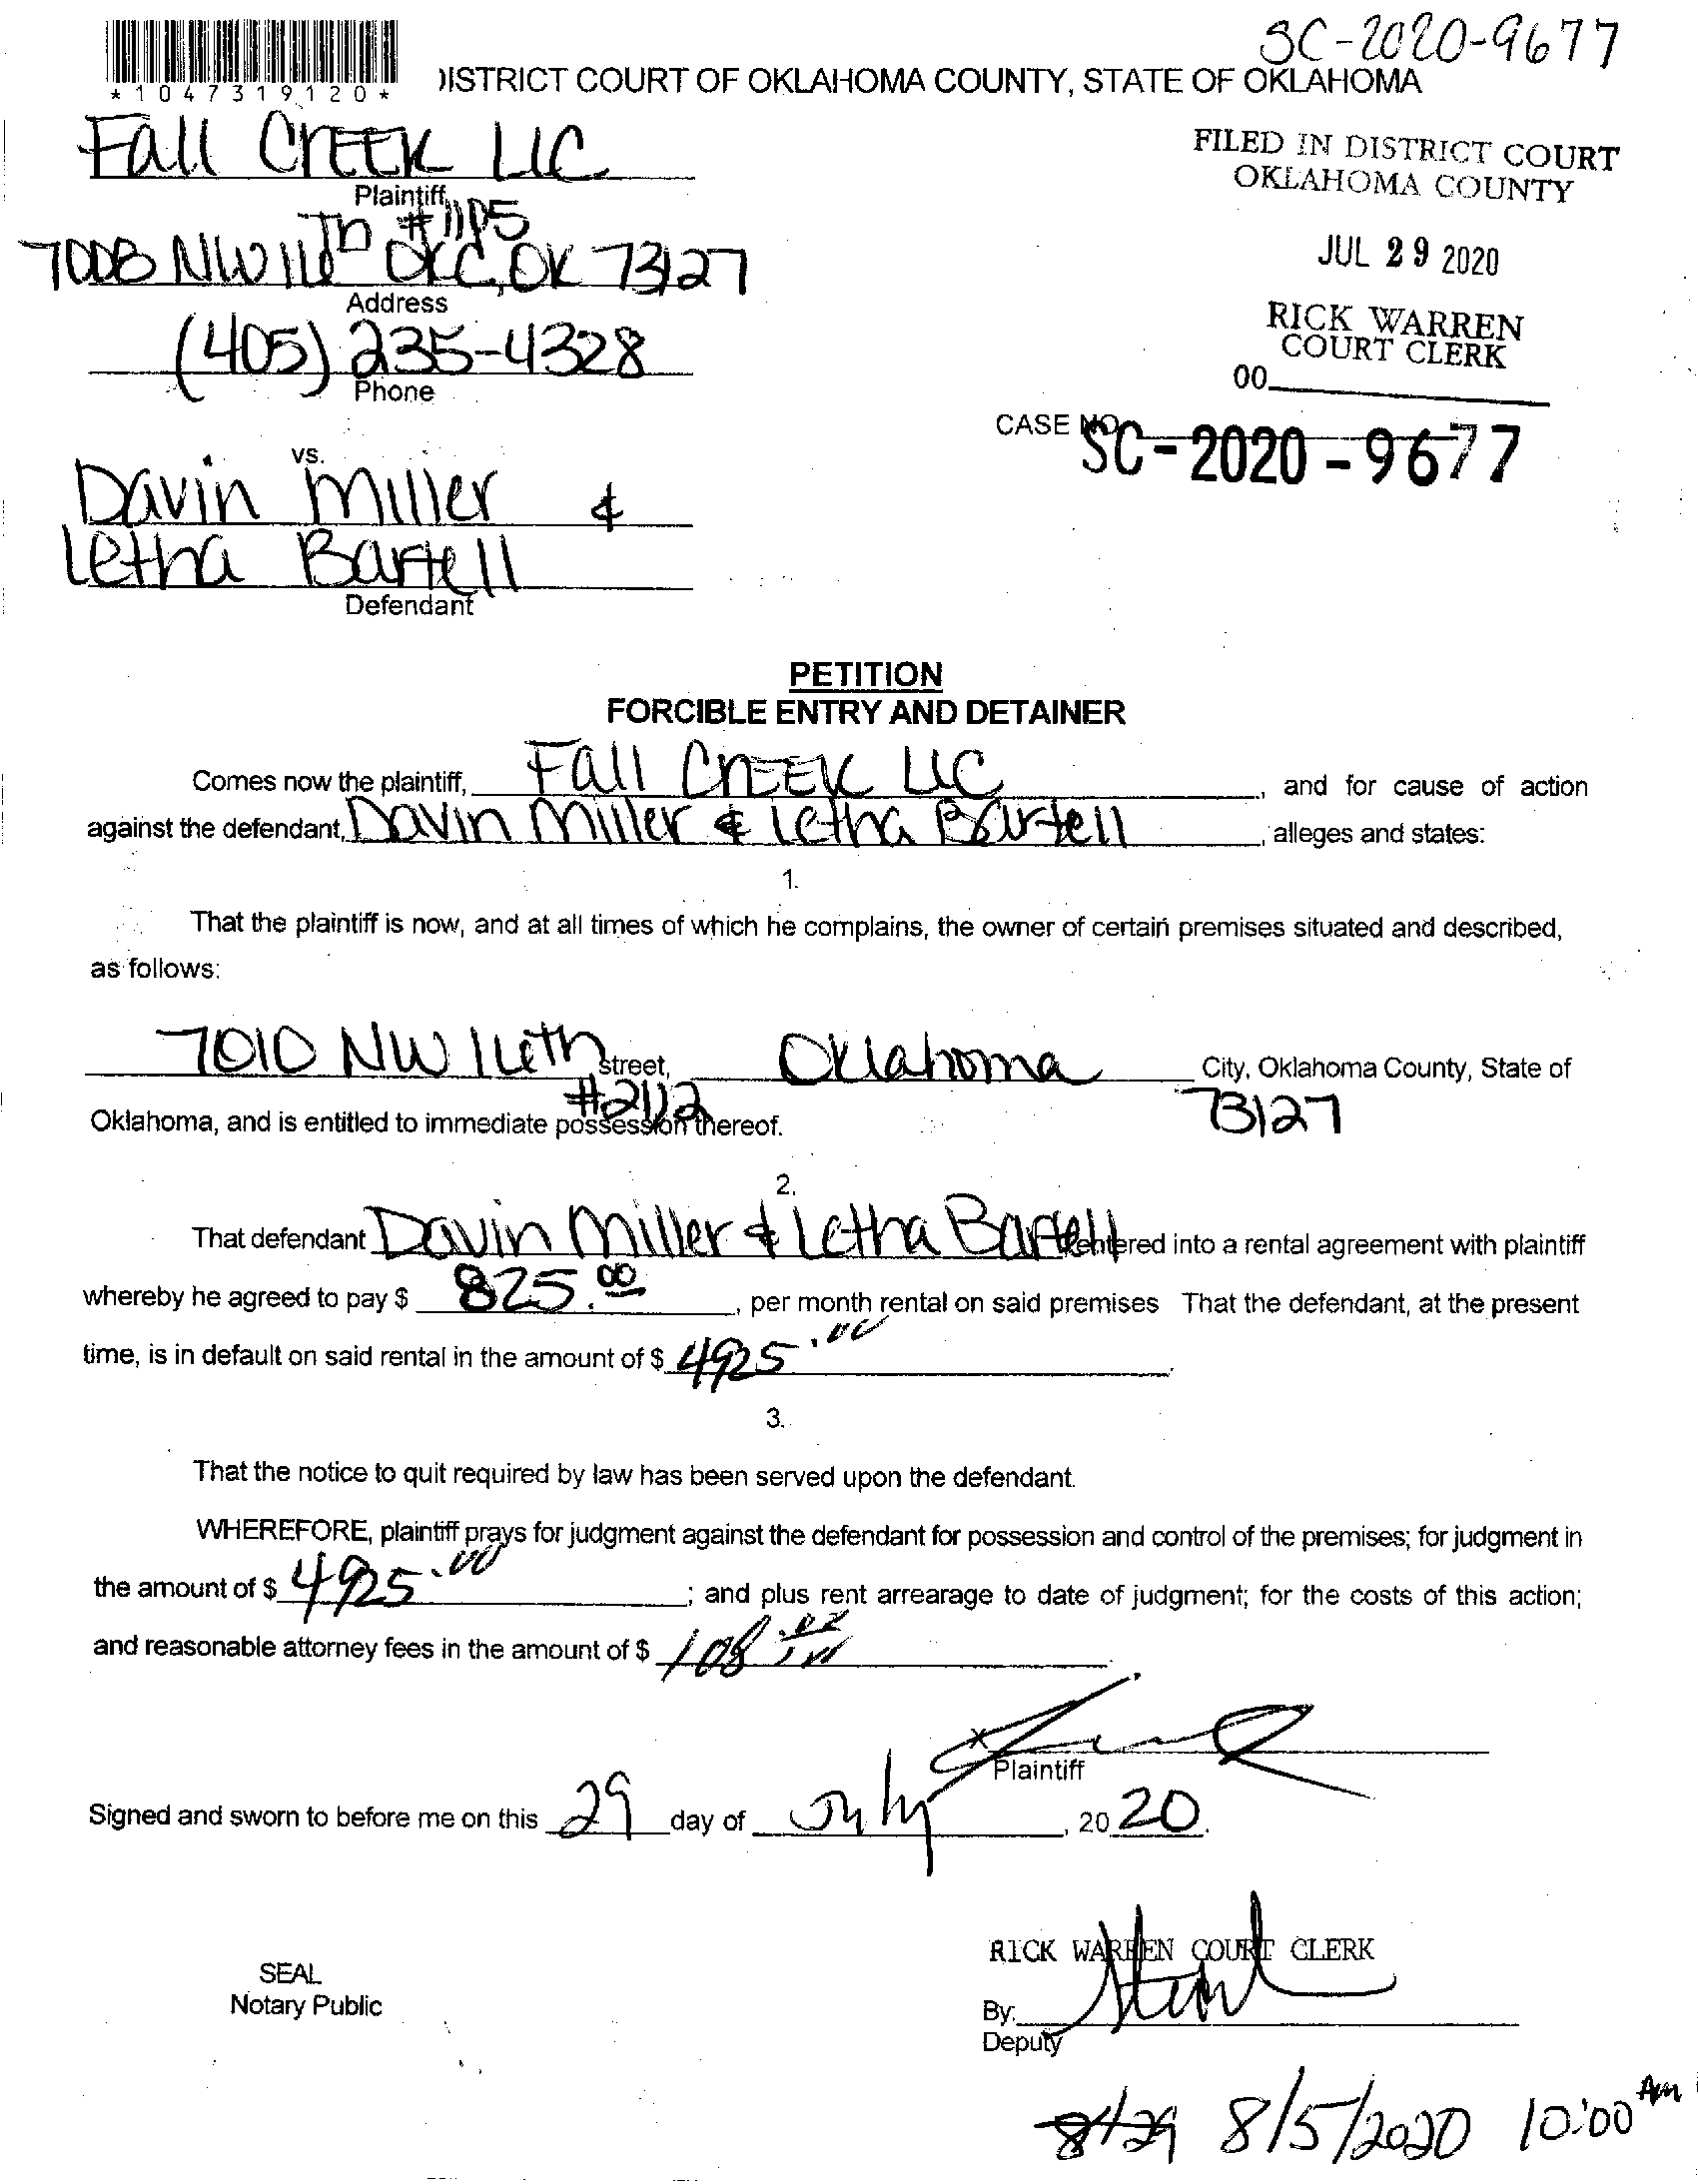 SC-2020-9677
*1047319120*
DISTRICT COURT OF OKLAHOMA COUNTY, STATE OF OKLAHOMA
Fall Creek LLC
Plaintiff
FILED IN DISTRICT COURT
OKLAHOMA COUNTY
#1105
7008 NW 16th OKC, OK 73127
Address
JUL 29 2020
(405) 235-4328
Phone
RICK WARREN
COURT CLERK
00
CASE NO.
SC-2020-9677
vs.
Davin Miller &
Letha Bartell
Defendant
PETITION
FORCIBLE ENTRY AND DETAINER
Comes now the plaintiff, Fall Creek LLC, and for cause of action
against the defendant, Davin Miller & Letha Bartell, alleges and states:
1.
That the plaintiff is now, and at all times of which he complains, the owner of certain premises situated and described,
as follows:
7010 NW 16th street, Oklahoma City, Oklahoma County, State of
#2112 73127
Oklahoma, and is entitled to immediate possession thereof.
2.
That defendant Davin Miller & Letha Bartell entered into a rental agreement with plaintiff
whereby he agreed to pay $ 825.00, per month rental on said premises That the defendant, at the present
time, is in default on said rental in the amount of $ 4925.00.
3.
That the notice to quit required by law has been served upon the defendant.
WHEREFORE, plaintiff prays for judgment against the defendant for possession and control of the premises; for judgment in
the amount of $ 4925.00; and plus rent arrearage to date of judgment; for the costs of this action;
and reasonable attorney fees in the amount of $ 108
X
Plaintiff
Signed and sworn to before me on this 29 day of July, 2020.
RICK WARREN COURT CLERK
SEAL
Notary Public
By:
Deputy
8/29 8/5/2020 10:00 AM